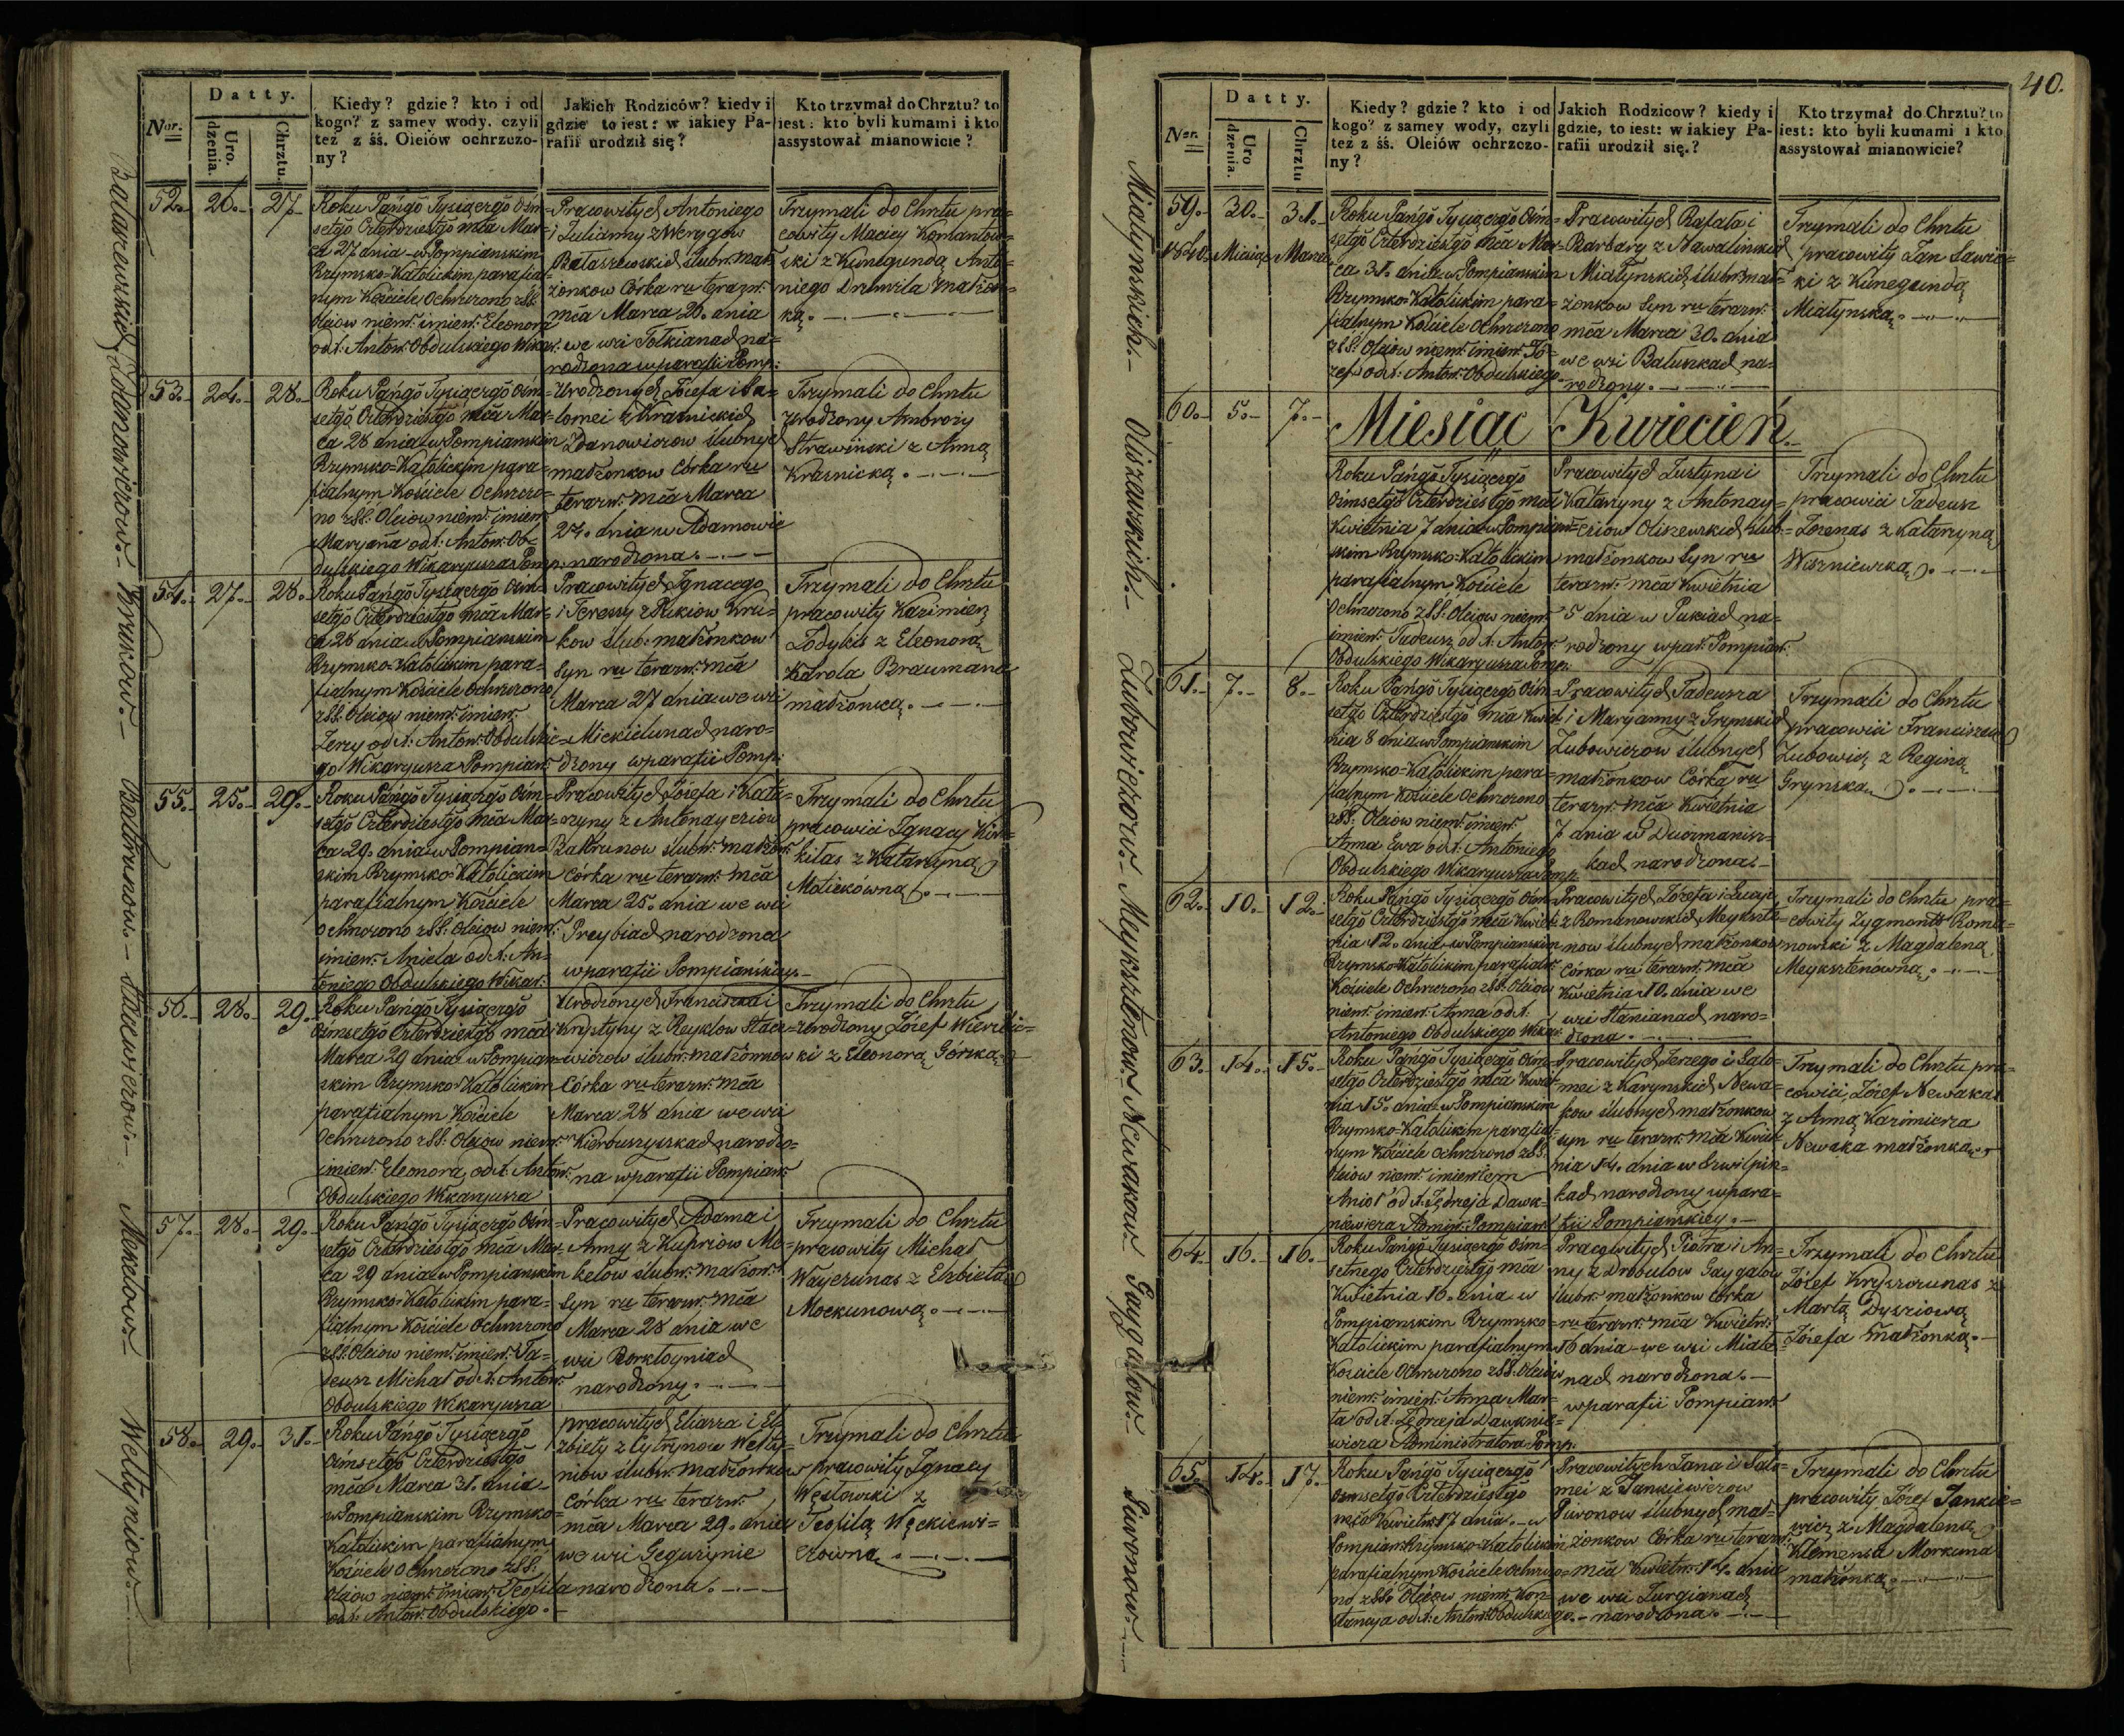 40.
Datty.
Nor.
Uro.
dzenia.
Chrztu.
Kiedy? gdzie? kto i od
kogo? z samey wody, czyli
też z śś. Oleiów ochrzczo-
ny?
Jakich Rodziców? kiedy i
gdzie to iest: w iakiey Pa-
rafii urodził się?
Kto trzymał do Chrztu? to
iest: kto byli kumami i kto
assystował mianowicie?
52. 26. 27.
Roku Pańgo Tysiącgo Ośm=
setgo Czterdziestgo mca Mar=
ca 27 dnia w Pompianskim
Rzymsko=Katolickim parafial=
nym Kościele Ochrzczono z SS.
Oleiow niem. imien. Eleonora
od X. Anton. Obdulskiego Wikar.
Pracowitych Antoniego
i Julianny z Werygow
Bałaszewskich ślubn. mał=
żonkow Córka ru teraz.
mca Marca 26. dnia
we wsi Tolkianach na=
rodzona w parafii Pomp.
Trzymali do Chrztu pra=
cowity Maciey Romanow=
ski z Kunegundą Anto=
niego małżon=
ką.
53. 24. 28.
Roku Pańgo Tysiącgo Ośm=
setgo Czterdziestgo mca Mar=
ca 28 dnia w Pompianskim
Rzymsko=Katolickim para=
fialnym Kościele Ochrzczo=
no z SS. Oleiow niem. imien.
Maryana od X. Anton. Ob=
dulskiego Wikaryusza Pomp.
Urodzonych Józefa i Sa=
lomei z Kraśnickich
Zdanowiczow ślubnych
małżonkow Córka ru
teraz. mca Marca
24. dnia w Adamowie
narodzona.
Trzymali do Chrztu
Urodzony Ambroży
Strawiński z Anną
Kraśnicką.
54. 27. 28.
Roku Pańgo Tysiącgo Ośm=
setgo Czterdziestgo mca Mar=
ca 28 dnia w Pompianskim
Rzymsko=Katolickim para=
fialnym Kościele Ochrzczono
z SS. Oleiow niem. imien.
Jerzy od X. Anton. Obdulskie=
go Wikaryusza Pompian.
Pracowitych Ignacego
i Teressy z Kru=
kow ślub. małżonkow
Syn ru teraz. mca
Marca 27 dnia we wsi
Mickielunach naro=
dzony w parafii Pomp.
Trzymali do Chrztu
pracowity Kazimierz
Łodykis z Eleonorą
Karola Braumana
małżonką.
55. 25. 29.
Roku Pańgo Tysiącgo Ośm=
setgo Czterdziestgo mca Mar=
ca 29. dnia w Pompian=
skim Rzymsko=Katolickim
parafialnym Kościele
Ochrzczono z SS. Oleiow niem.
imien. Aniela od X. An=
toniego Obdulskiego Wikar.
Pracowitych Józefa i Kata=
rzyny z Antonayciow
Baltrunow ślubn. małżon.
Córka ru teraz. mca
Marca 25. dnia we wsi
narodzona
w parafii Pompiańskiey
Trzymali do Chrztu
pracowici Ignacy Kir=
kiłas z Katarzyną
Molickówną.
56. 28. 29.
Roku Pańgo Tysiącgo
Ośmsetgo Czterdziestgo mca
Marca 29 dnia w Pompian=
skim Rzymsko=Katolickim
parafialnym Kościele
Ochrzczono z SS. Oleiow niem.
imien. Eleonora od X. Anton.
Obdulskiego Wikaryusza
Urodzonych Franciszka i
Krystyny z Reyklow Stace=
wiczow ślubn. małżonkow
Córka ru teraz. mca
Marca 28 dnia we wsi
Kierbuszyszkach narodzo=
na w parafii Pompian.
Trzymali do Chrztu
urodzony Józef Wierzbic=
ki z Eleonorą Górską
57. 28. 29.
Roku Pańgo Tysiącgo Ośm=
setgo Czterdziestgo mca Mar=
ca 29 dnia w Pompianskim
Rzymsko=Katolickim para=
fialnym Kościele Ochrzczono
z SS. Oleiow niem. imien. Ta=
deusz Michał od X. Anton.
Obdulskiego Wikaryusza
Pracowitych Adama i
Anny z Kupriow Mo=
kelow ślubn. małżon.
Syn ru teraz. mca
Marca 28 dnia we
wsi Borkloyniach
narodzony.
Trzymali do Chrztu
pracowity Michał
Wayczunas z Elżbietą
Mockunową.
58. 29. 31.
Roku Pańgo Tysiącgo
Ośmsetgo Czterdziestgo
mca Marca 31. dnia
w Pompianskim Rzymsko=
Katolickim parafialnym
Kościele Ochrzczono z SS.
Oleiow niem. imien. Teofila
od X. Anton. Obdulskiego.
pracowitych Eliasza i Elż
biety z Cytrynow Welty=
niow ślubn. małżonkow
Córka ru teraz.
mca Marca 29. dnia
we wsi Geguzynie
narodzona.
Trzymali do Chrztu
pracowity Ignacy
Węsłowski z
Teofilą Węckiewi=
czowną.
Bałaszewskich Zdanowiczow. Krukow. Baltrunow. Stacewiczow. Mokelow. Weltyniow.
Datty.
Nor.
Uro
dzenia.
Chrztu
Kiedy? gdzie? kto i od
kogo? z samey wody, czyli
też z śś. Oleiów ochrzczo-
ny?
Jakich Rodzicow? kiedy i
gdzie, to iest: w iakiey Pa-
rafii urodził się.?
Kto trzymał do Chrztu? to
iest: kto byli kumami i kto
assystował mianowicie?
59. 30. 31.
1840. Miesiąc Marca
Roku Pańgo Tysiącgo Ośm=
setgo Czterdziestgo mca Mar=
ca 31. dnia w Pompianskim
Rzymsko=Katolickim para=
fialnym Kościele Ochrzczono
z SS. Oleiow niem. imien. Jó=
zef od X. Anton. Obdulskiego
Pracowitych Rafała i
Barbary z Nawalinskich
Miałynskich ślubn. mał=
żonkow Syn ru teraz.
mca Marca 30. dnia
we wsi Baluszkach na=
rodzony.
Trzymali do Chrztu
pracowity Jan Sawic=
ki z Kunegundą
Miałynską.
60. 5. 7.
Miesiąc Kwiecień.
Roku Pańgo Tysiącgo
Ośmsetgo Czterdziestgo mca
Kwietnia 7 dnia w Pompian=
skim Rzymsko=Katolickim
parafialnym Kościele
Ochrzczono z SS. Oleiow niem.
imien. Tadeusz od X. Anton.
Obdulskiego Wikaryusza Pomp.
Pracowitych Justyna i
Katarzyny z Antonay=
ciow Oliszewskich ślub=
małżonkow Syn ru
teraz. mca Kwietnia
5 dnia w Pukiach na=
rodzony w par. Pompian.
Trzymali do Chrztu
pracowici Tadeusz
Jozenas z Katarzyną
Wiszniewską.
61. 7. 8.
Roku Pańgo Tysiącgo Ośm=
setgo Czterdziestgo mca Kwiet=
nia 8 dnia w Pompianskim
Rzymsko=Katolickim para=
fialnym Kościele Ochrzczono
z SS. Oleiow niem. imien.
Anna Ewa od X. Antoniego
Obdulskiego Wikaryusza Pomp.
Pracowitych Tadeusza
i Maryanny z Grynskich
Zubowiczow ślubnych
małżonkow Córka ru
teraz. mca Kwietnia
7 dnia w Dwarmanisz=
kach narodzona.
Trzymali do Chrztu
pracowici Franciszek
Zubowicz z Reginą
Grynską.
62. 10. 12.
Roku Pańgo Tysiącgo Ośm=
setgo Czterdziestgo mca Kwiet=
nia 12. dnia w Pompianskim
Rzymsko=Katolickim parafialn.
Kościele Ochrzczono z SS. Oleiow
niem. imien. Anna od X.
Antoniego Obdulskiego Wikar.
Pracowitych Józefa i Łucyi
z Romanowskich Meykszte=
now ślubnych małżonkow
Córka ru teraz. mca
Kwietnia 10. dnia we
wsi Stanianach naro=
dzona.
Trzymali do Chrztu pra=
cowity Zygmontt Roma=
nowski z Magdaleną
Meyksztenówną.
63. 14. 15.
Roku Pańgo Tysiącgo Ośm=
setgo Czterdziestgo mca Kwiet=
nia 15. dnia w Pompianskim
Rzymsko=Katolickim parafial=
nym Kościele Ochrzczono z SS.
Oleiow niem. imieniem
Anioł od X. Jędrzeja Dawk=
niewicza Admin. Pompian.
Pracowitych Jerzego i Salo=
mei z Karynskich Newa=
kow ślubnych małżonkow
syn ru teraz. mca Kwiet=
nia 14. dnia w Szwilpisz=
kach narodzony w para=
fii Pompiańskiey.
Trzymali do Chrztu pra=
cowici, Józef Newakas
z Anną Kazimierza
Newaka małżonką
64 16. 16.
Roku Pańgo Tysiącgo Ośm=
setnego Czterdziestgo mca
Kwietnia 16. dnia w
Pompianskim Rzymsko=
Katolickim parafialnym
Kościele Ochrzczono z SS. Oleiow
niem. imien. Anna Mar=
ta od X. Jędrzeja Dawknie=
wicza Administratora Pomp.
Pracowitych Piotra i An=
ny z Drobulow Gaygalow
ślubn. małżonkow Córka
ru teraz. mca Kwietn.
16 dnia we wsi Miałe=
nach narodzona.
w parafii Pompian.
Trzymali do Chrztu
Józef Kryszczunas z
Martą Dyrziową
Józefa małżonką.
65. 14. 17.
Roku Pańgo Tysiącgo
Ośmsetgo Czterdziestgo
mca Kwietn. 17 dnia w
Pompian. Rzymsko=Katolickim
parafialnym Kościele Ochrzczo=
no z SS. Oleiow niem. Kon=
stancya od X. Anton. Obdulskiego.
Pracowitych Jana i Salo=
mei z Jankiewiczow
Piwonow ślubnych mał=
żonkow Córka ru teraz.
mca Kwietn. 14. dnia
we wsi Jurgianach
narodzona.
Trzymali do Chrztu
pracowity Józef Jankie=
wicz z Magdaleną
Klemensa Morkuna
małżonką.
Miałynskich. Oliszewskich. Zubowiczow. Meyksztenow. Newakow. Gaygalow. Piwonow.